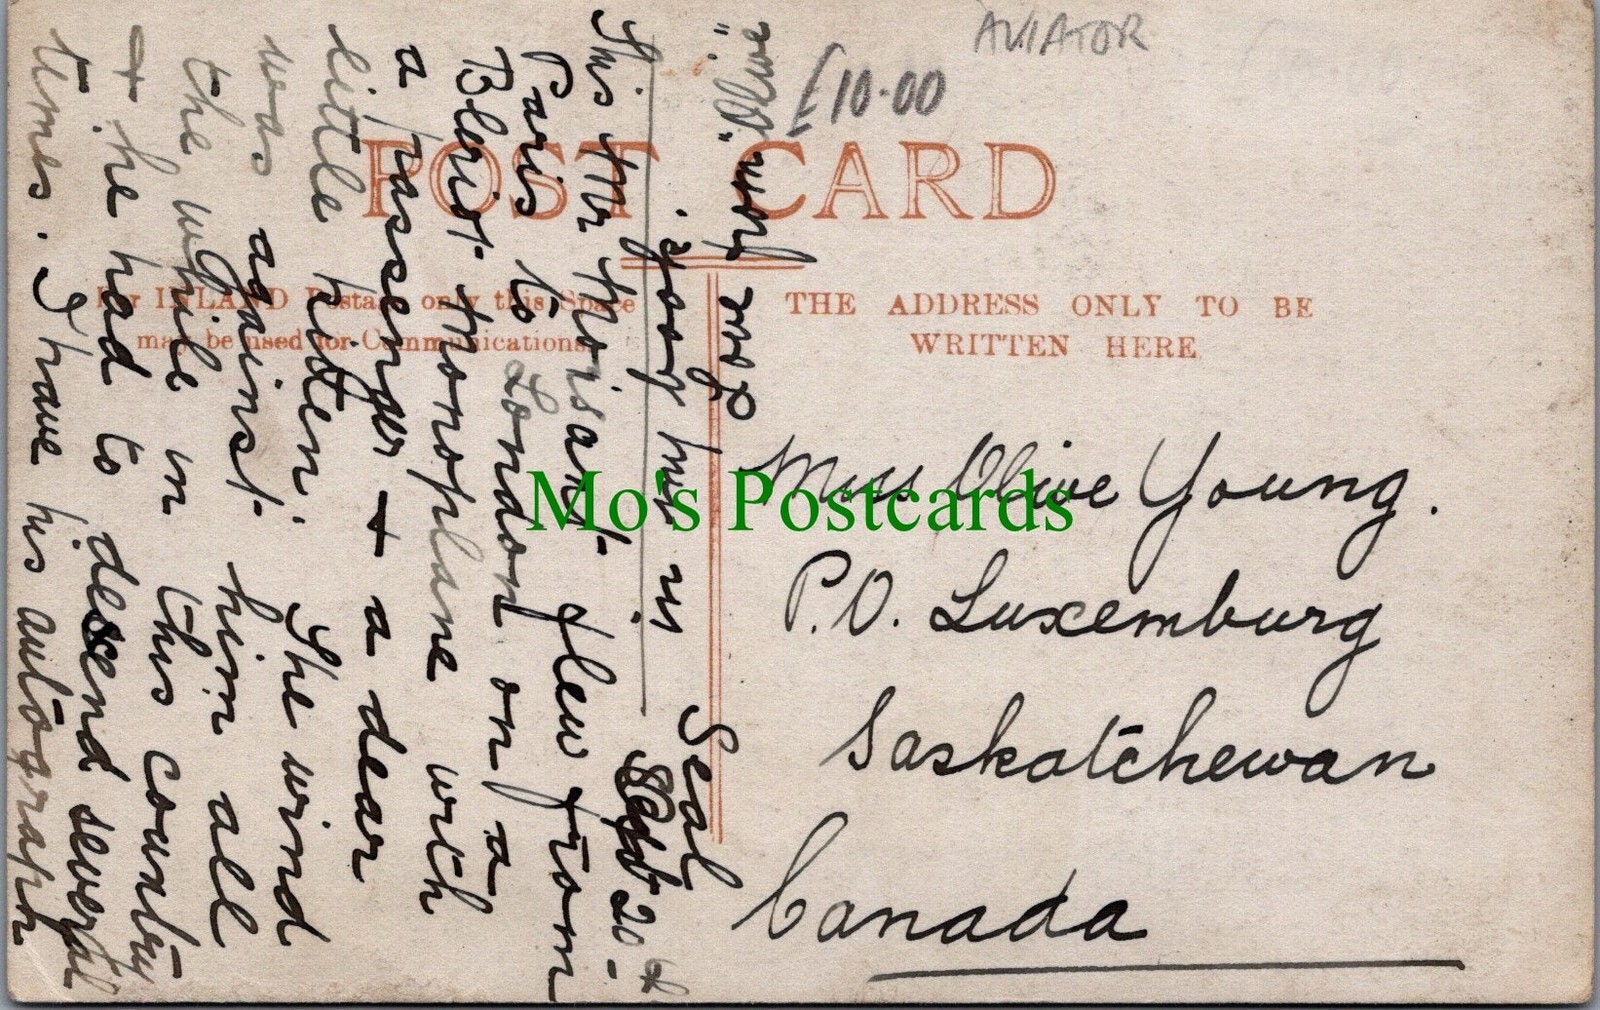 AVIATOR
£10.00
POST CARD
For INLAND Postage only this Space
may be used for Communications.
THE ADDRESS ONLY TO BE
WRITTEN HERE
Miss Olive Young.
P.O. Luxemburg
Saskatchewan
Canada
Seal
Sept 20-
This Mr Moisant flew from
Paris to London on a
Bleriot Monoplane with
a passenger + a dear
little kitten. The wind
was against him all
the while in this country
+ he had to descend several
times. I have his autograph
in my book.
Love from
"Olive"
Mo's Postcards